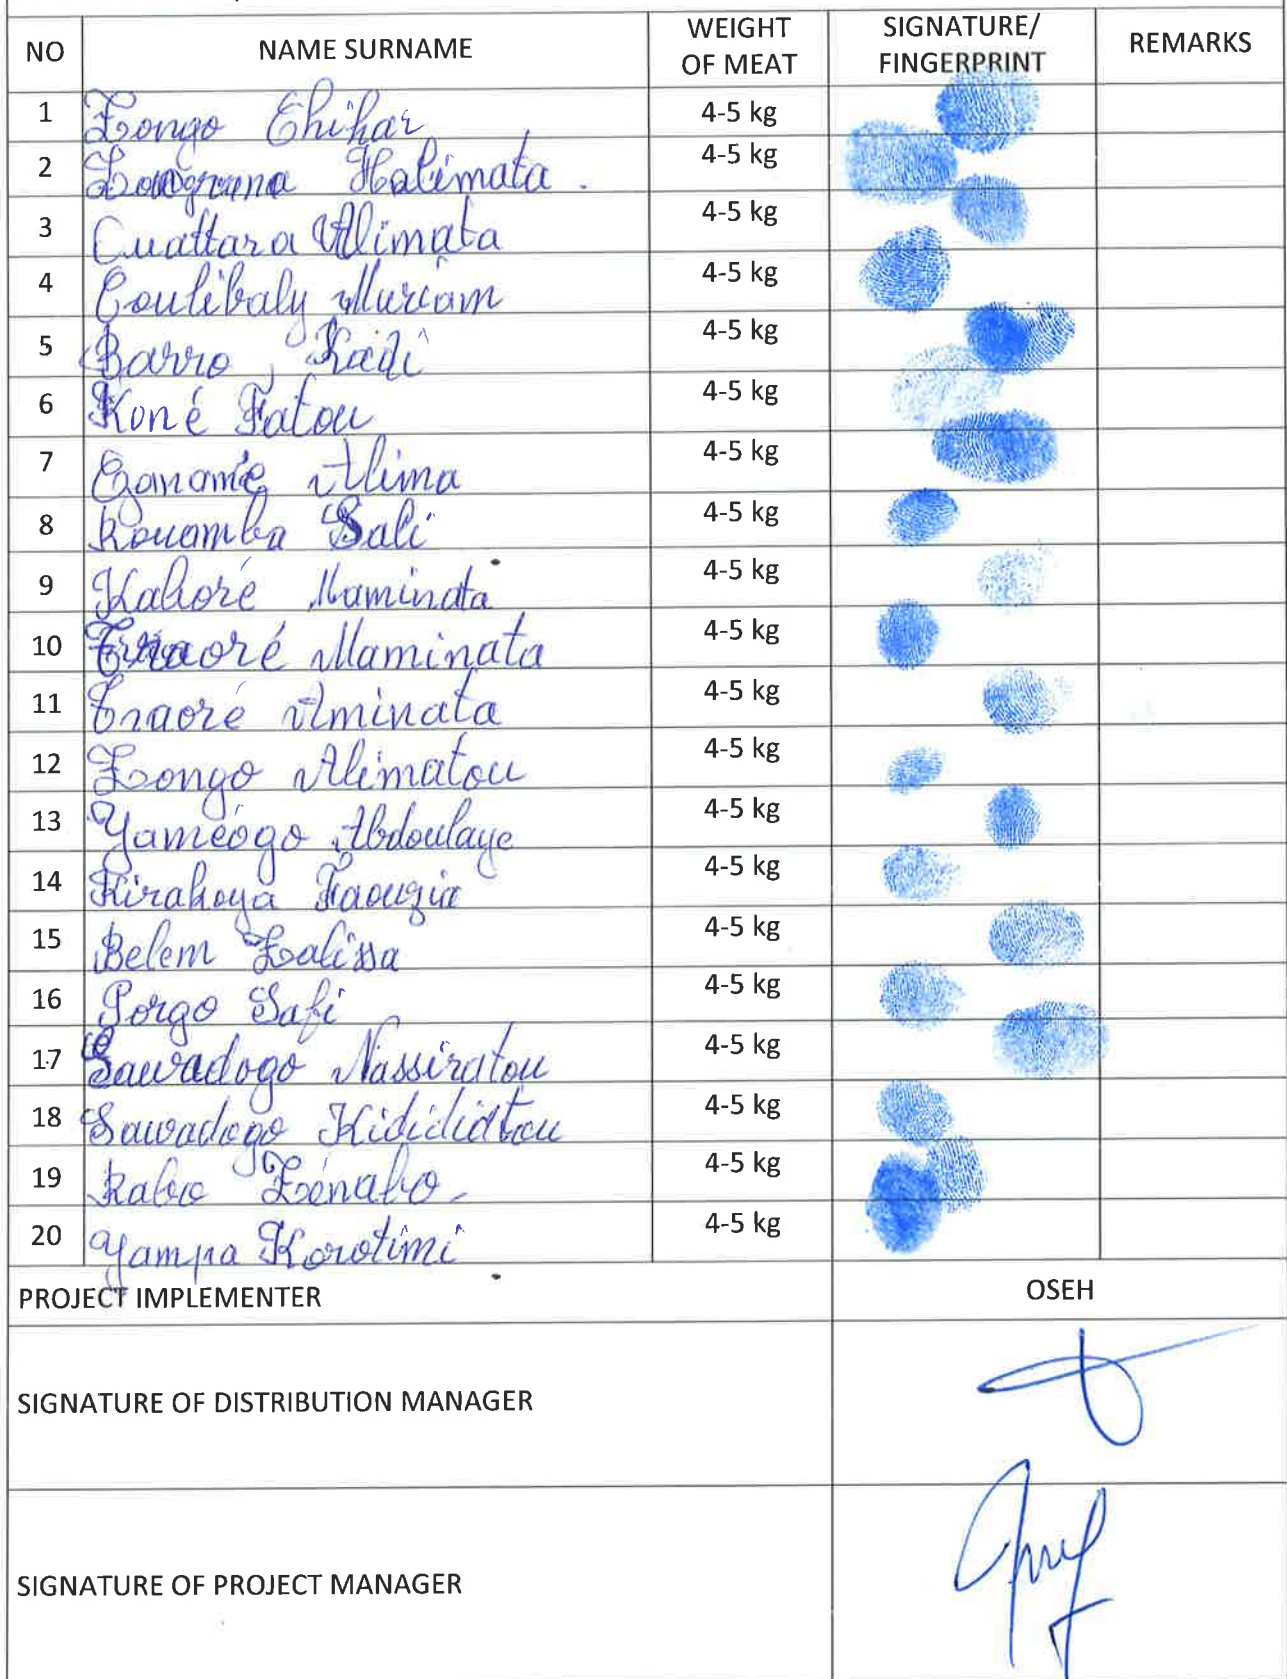 NO NAME SURNAME WEIGHT OF MEAT SIGNATURE/ FINGERPRINT REMARKS
1 Zongo 4-5 kg
2 Halimata. 4-5 kg
3 Ouattara Alimata 4-5 kg
4 Coulibaly Mariam 4-5 kg
5 Barro Kadi 4-5 kg
6 Koné Fatou 4-5 kg
7 Ganamé Alima 4-5 kg
8 Rouamba Sali 4-5 kg
9 Kaboré Maminata 4-5 kg
10 Traoré Maminata 4-5 kg
11 Traoré Aminata 4-5 kg
12 Zongo Alimatou 4-5 kg
13 Yaméogo Abdoulaye 4-5 kg
14 Kirakoya Faouzia 4-5 kg
15 Belem Zalissa 4-5 kg
16 Porgo Safi 4-5 kg
17 Sawadogo Nassiratou 4-5 kg
18 Sawadogo Kididiatou 4-5 kg
19 Zénabo 4-5 kg
20 Yampa Korotimi 4-5 kg
PROJECT IMPLEMENTER OSEH
SIGNATURE OF DISTRIBUTION MANAGER
SIGNATURE OF PROJECT MANAGER